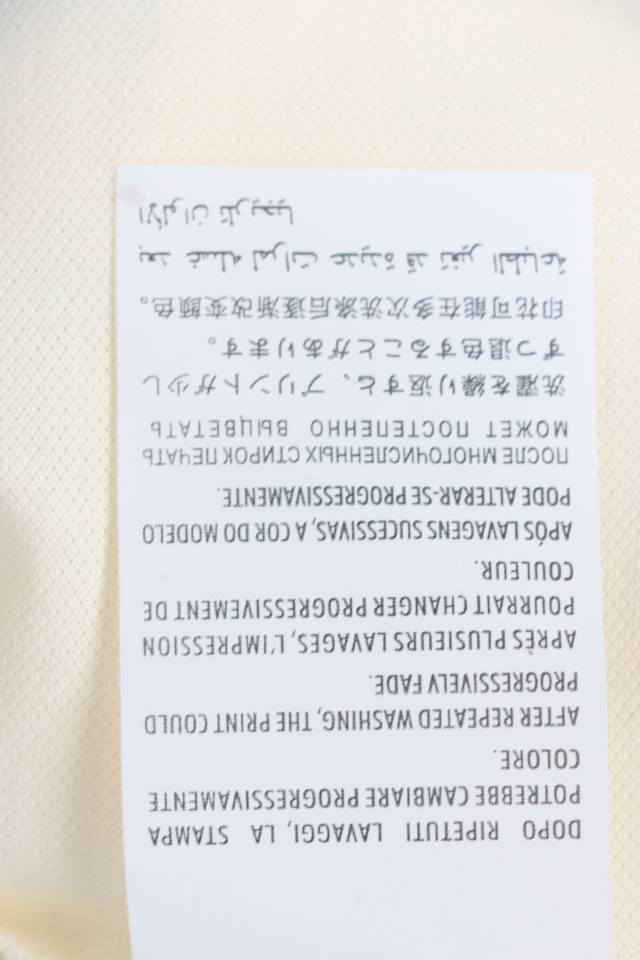 DOPO RIPETUTI LAVAGGI, LA STAMPA
POTREBBE CAMBIARE PROGRESSIVAMENTE
COLORE.
AFTER REPEATED WASHING, THE PRINT COULD
PROGRESSIVELY FADE.
APRÈS PLUSIEURS LAVAGES, L'IMPRESSION
POURRAIT CHANGER PROGRESSIVEMENT DE
COULEUR.
APÓS LAVAGENS SUCESSIVAS, A COR DO MODELO
PODE ALTERAR-SE PROGRESSIVAMENTE.
ПОСЛЕ МНОГОЧИСЛЕННЫХ СТИРОК ПЕЧАТЬ
МОЖЕТ ПОСТЕПЕННО ВЫЦВЕТАТЬ
洗濯を繰り返すと、プリントが少し
ずつ退色することがあります。
印花可能在多次洗涤后逐渐改变颜色。
بعد غسله لمرات عديدة قد تغير الطباعة
الألوان تدريجيا